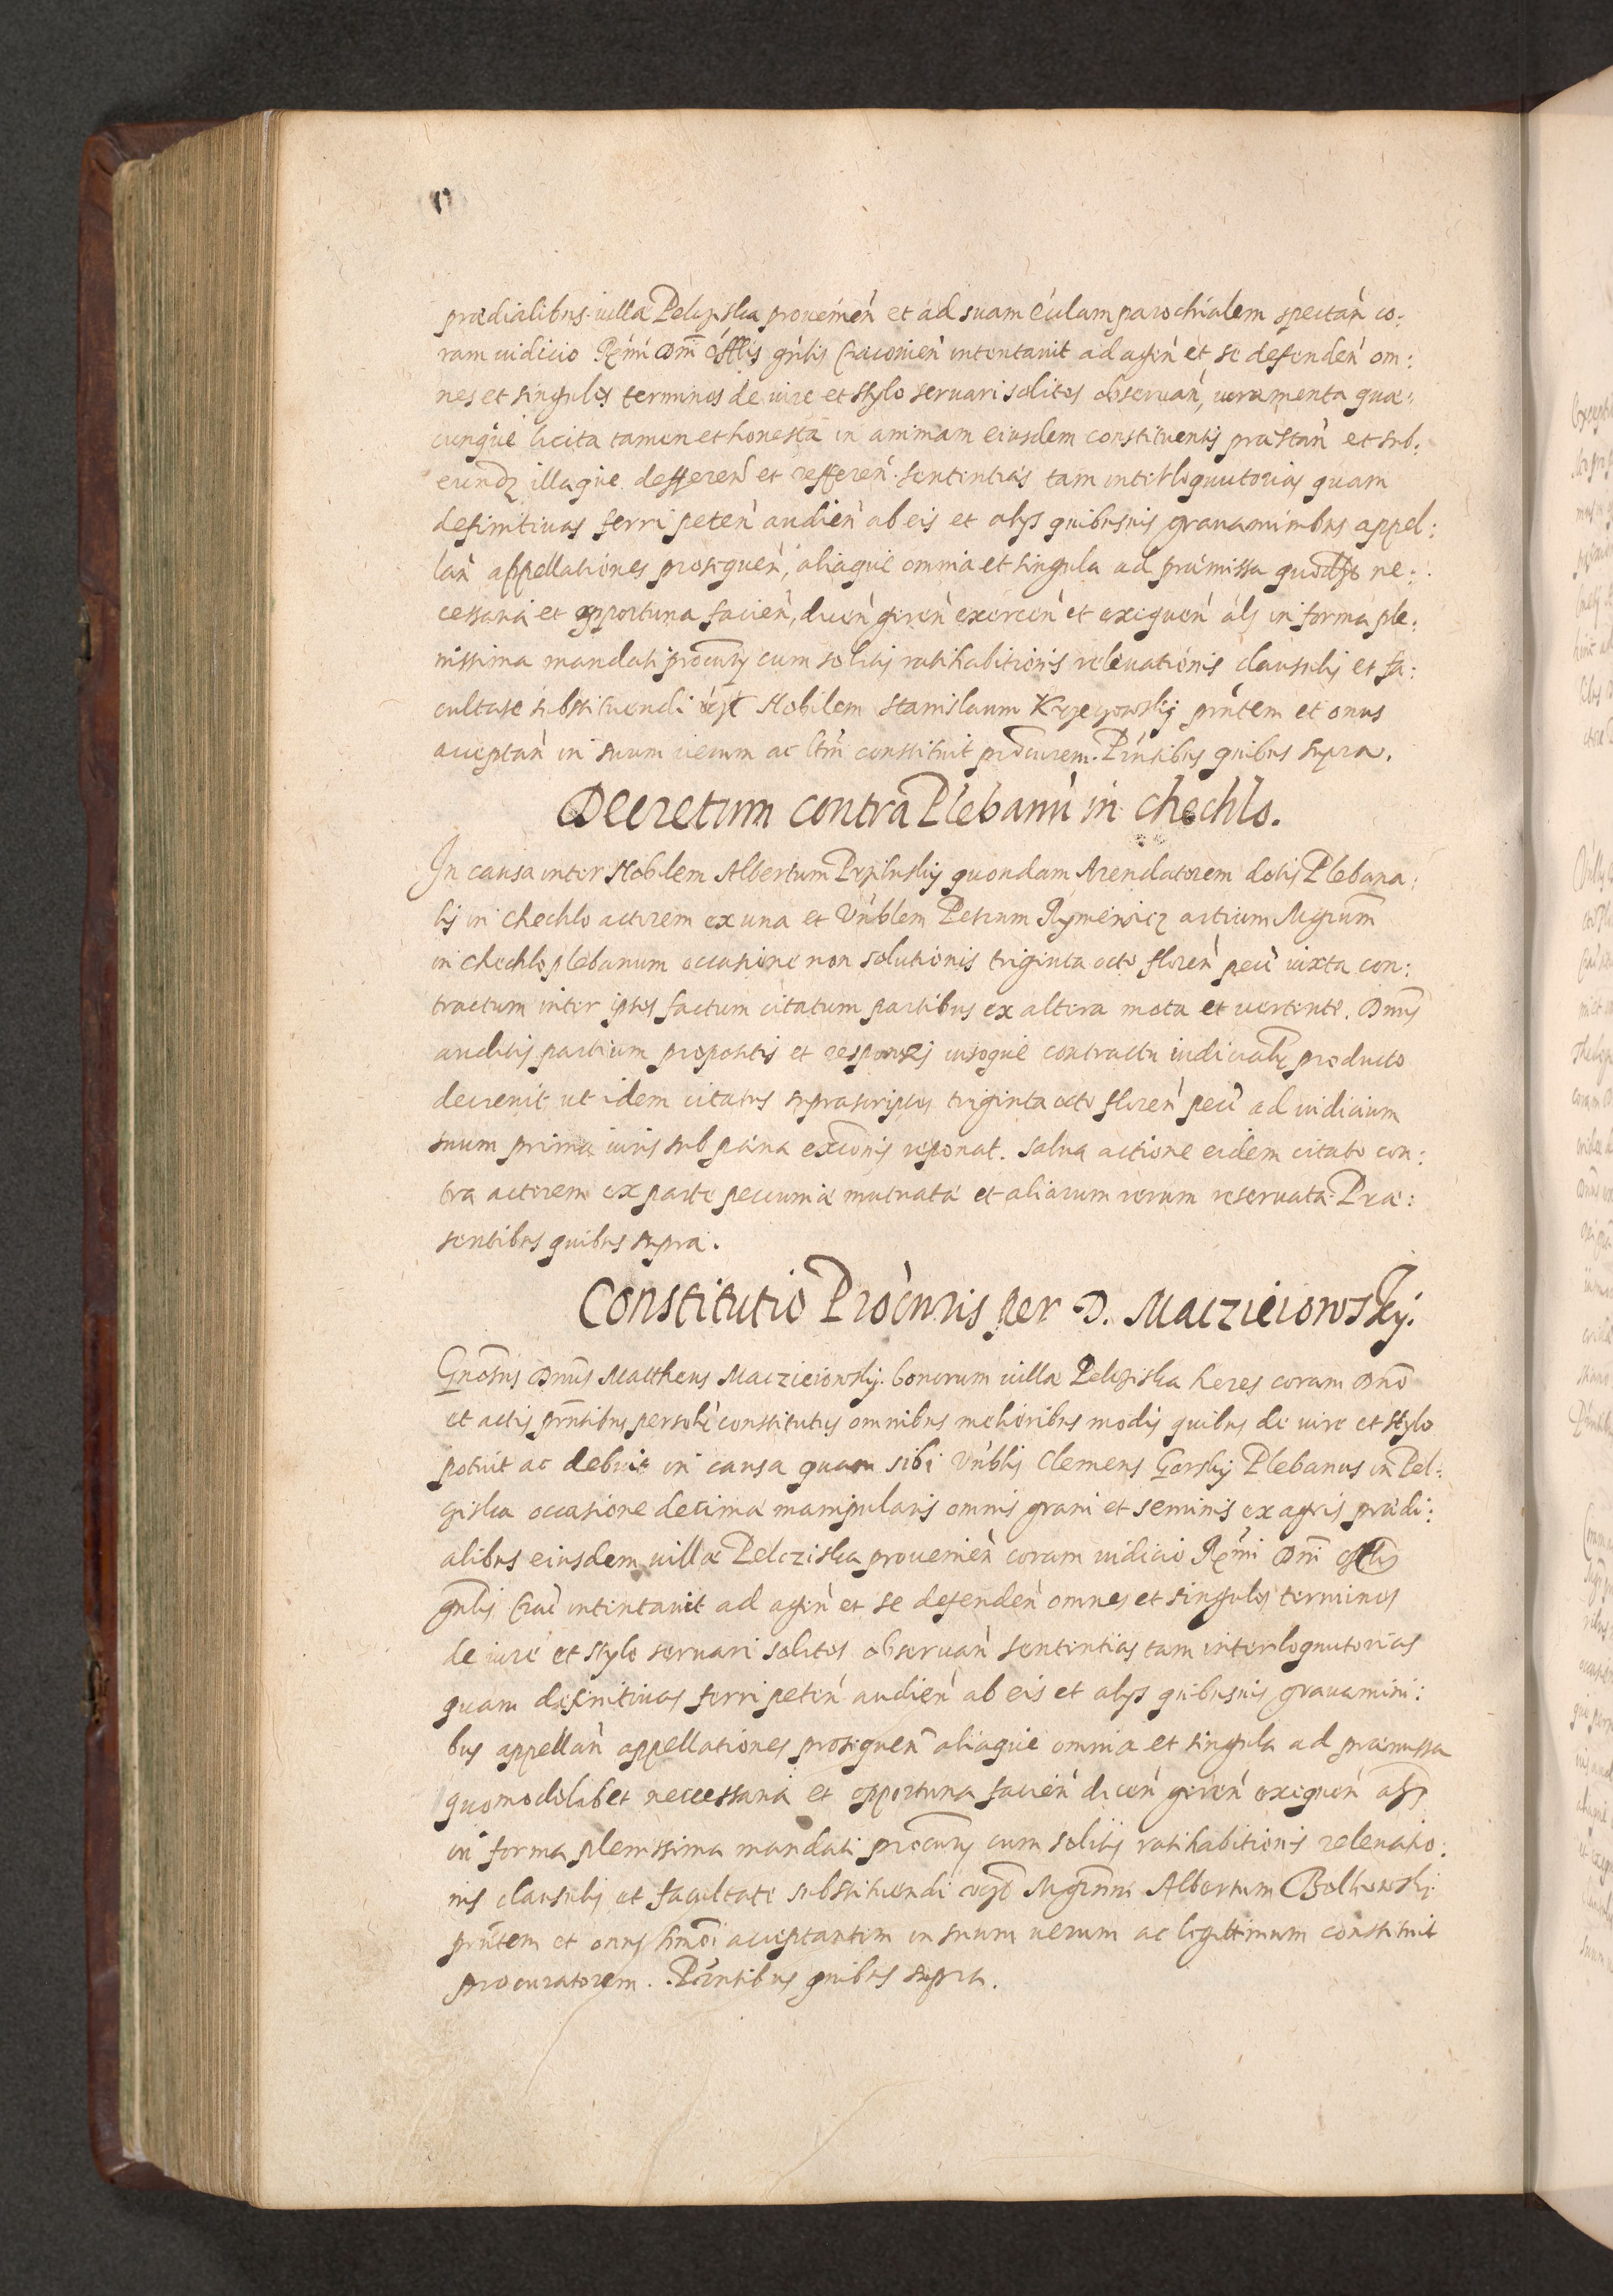 prædialibus villæ Pelcziska provenien̄ et ad suam ec̄clam parochialem spectan̄ co:
ram iudicio Rm̄i Dn̄i offlis gn̄lis Cracovien̄ intentavit ad agen̄ et se defenden̄ om:
nes et singulos terminos de iure et stylo servari solitos observan̄, iuramenta quæ:
cunque licita tamen et honesta in animam eiusdem constituentis præstan̄ et sub:
eundz illaque defferen̄ et refferen̄ sententias tam interloquutorias quam
definitivas ferri peten̄ audien̄ ab eis et alys quibusvis gravaminibus appel:
lan̄ appellationes prosequen̄, aliaque omnia et singula ad præmissa quodlbt ne:
cessaria et opportuna facien̄, dicen̄ geren̄ exercen̄ et exequen̄ als in forma ple:
nissima mandati procurys cum solitis ratihabitionis relevationis clausulis et fa:
cultate substituendi Nobilem Stanislaum prn̄tem et onus
acceptan̄ in suum verum ac ltm̄ constituit procurem. Prn̄tibus quibus supra.
Decretum contra Plebanū in Chechlo.
In causa inter Nobilem Albertum quondam Arendatorem dotis Plebana:
lis in Chechlo actorem ex una et Vn̄blem Petrum artium Mgrum
in Chechlo plebanum occasione non solutionis triginta octo floren̄ pec̄ iuxta con:
tractum inter ipsos factum citatum partibus ex altera mota et vertente. Dnus
auditis partium propositis et responsis visoque contractu iudicialr producto
decrevit ut idem citatus suprascriptos triginta octo floren̄ pec̄ ad iudicium
suum prima iuris sub pæna exc̄onis reponat. Salva actione eidem citato con:
tra actorem ex parte pecuniæ mutuatæ et aliarum rerum reservata Præ:
sentibus quibus supra.
Constitutio Procuris per D. Maczieiowsky.
Gn̄osus Dnus Mattheus Maczieiowsky bonorum villæ Pelcziska heres coram Dn̄o
et actis prn̄tibus persolr constitutus omnibus melioribus modis quibus de iure et stylo
potuit ac debuit in causa quam sibi Vn̄blis Clemens Gorsky Plebanus in Pel:
cziska occasione decimæ manipularis omnis grani et seminis ex agris prædi:
alibus eiusdem villæ Pelcziska provenien̄ coram iudicio Rm̄i Dn̄i offlis
gn̄lis Crac̄ intentavit ad agen̄ et se defenden̄ omnes et singulos terminos
de iure et stylo servari solitos observan̄ sententias tam interloquutorias
quam definitivas ferri peten̄ audien̄ ab eis et alys quibusvis gravamini:
bus appellan̄ appellationes prosequen̄ aliaque omnia et singula ad præmissa
quomodolibet necessaria et opportuna facien̄ dicen̄ geren̄ exequen̄ als
in forma plenissima mandati procurys cum solitis ratihabitionis relevatio:
nis clausulis et facultate substituendi Mgrum Albertum Bolkowski
prn̄tem et onus hm̄oi acceptantem in suum verum ac legittimum constituit
procuratorem. Prn̄tibus quibus supra.